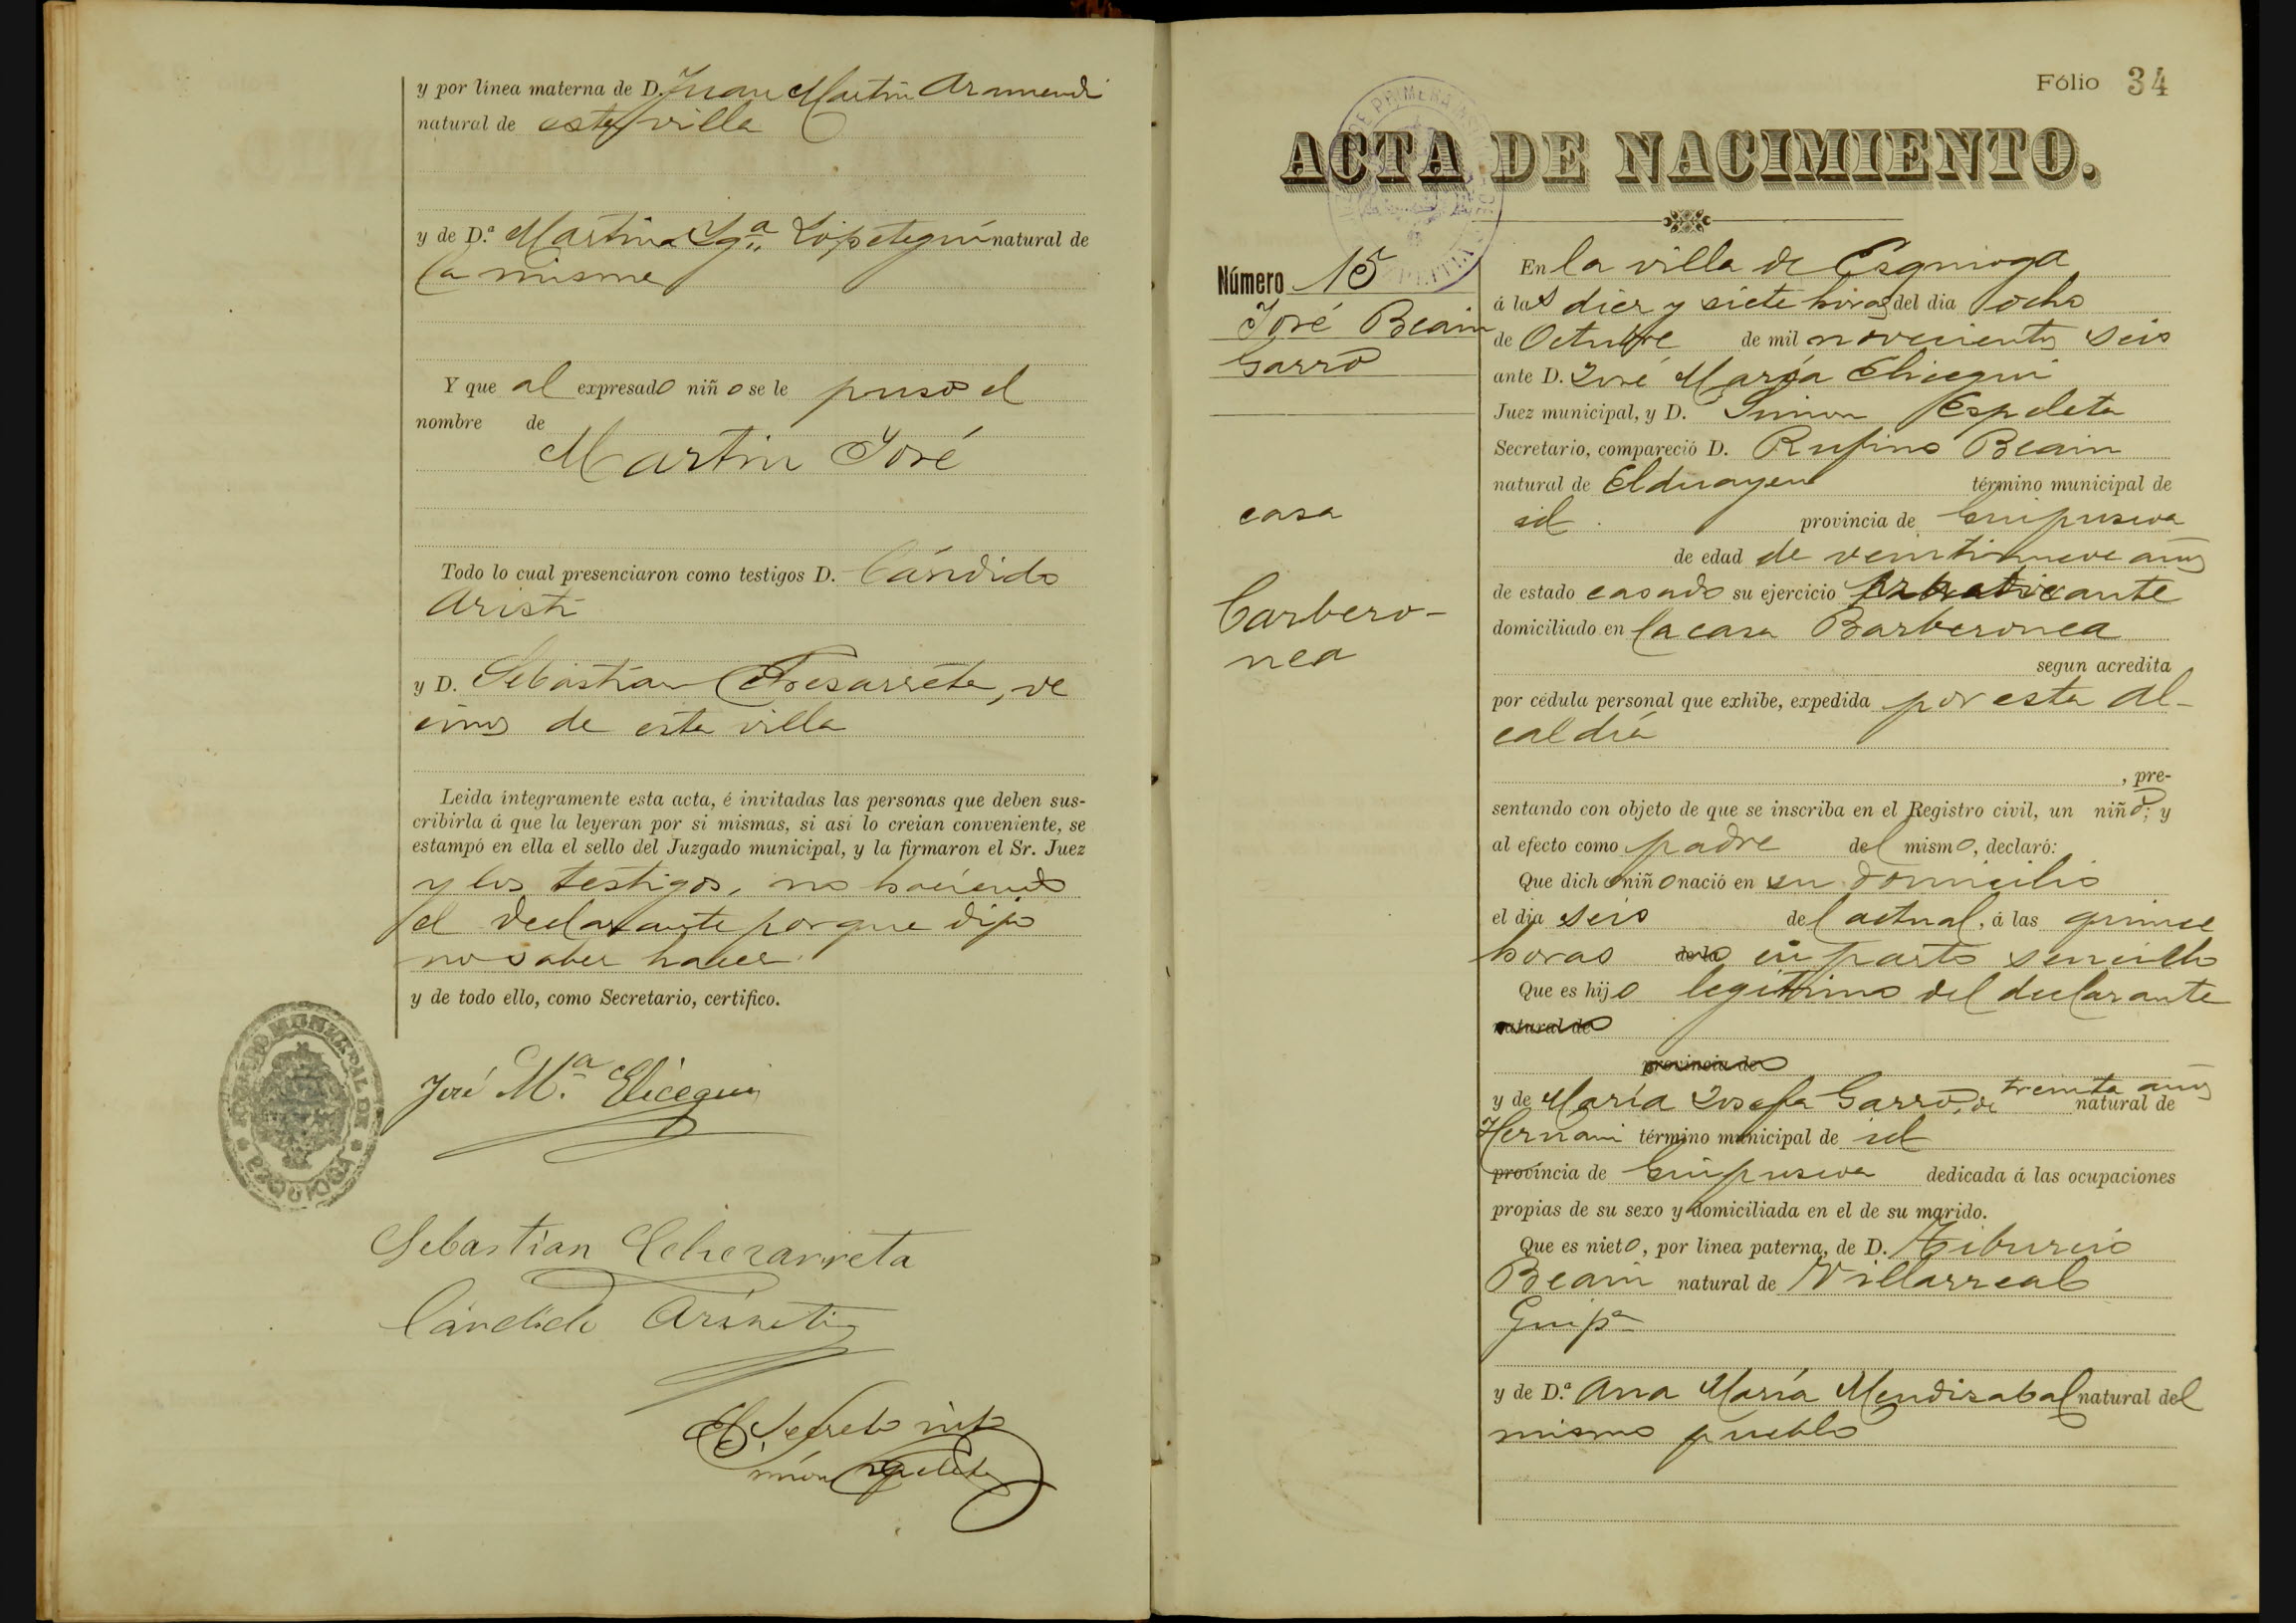 y por línea materna de D. Juan Martin Aramendi
natural de esta villa
y de D.ª Martina Ygª Lopetegui natural de
la misma
Y que al expresado niño se le puso el
nombre de
Martin José
Todo lo cual presenciaron como testigos D. Cándido
Aristi
y D. Sebastian Echezarreta, ve
cinos de esta villa
Leida íntegramente esta acta, é invitadas las personas que deben sus-
cribirla á que la leyeran por si mismas, si así lo creian conveniente, se
estampó en ella el sello del Juzgado municipal, y la firmaron el Sr. Juez
y los testigos, no haciendo
el declarante porque dijo
no saber hacer.
y de todo ello, como Secretario, certifico.
JUZGADO MUNICIPAL DE
EZQUIOGA
José M.ª Elicegui
Sebastian Echezarreta
Cándido Aristi
El Secretº intº
Simon Espeleta
Fólio 34
ACTA DE NACIMIENTO.
DE PRIMERA INST
Número 15
José Beain
Garro
casa
Barbero-
nea
En la villa de Ezquioga
á las diez y siete horas del dia ocho
de Octubre de mil novecientos seis
ante D. José María Elicegui
Juez municipal, y D. Simon Espeleta
Secretario, compareció D. Rufino Beain
natural de Elduayen término municipal de
id. provincia de Guipuzcoa
de edad de veintinueve años
de estado casado su ejercicio practicante
domiciliado en la casa Barberonea
segun acredita
por cédula personal que exhibe, expedida por esta Al-
caldía
, pre-
sentando con objeto de que se inscriba en el Registro civil, un niño; y
al efecto como padre del mismo, declaró:
Que dicho niño nació en su domicilio
el dia seis del actual, á las quince
horas de la en parto sencillo
Que es hijo legítimo del declarante
natural de
provincia de
y de María Josefa Garro, de treinta años natural de
Hernani término municipal de id
provincia de Guipuzcoa dedicada á las ocupaciones
propias de su sexo y domiciliada en el de su marido.
Que es nieto, por línea paterna, de D. Tiburcio
Beain natural de Villarreal
Guipª
y de D.ª Ana María Mendizabal natural del
mismo pueblo